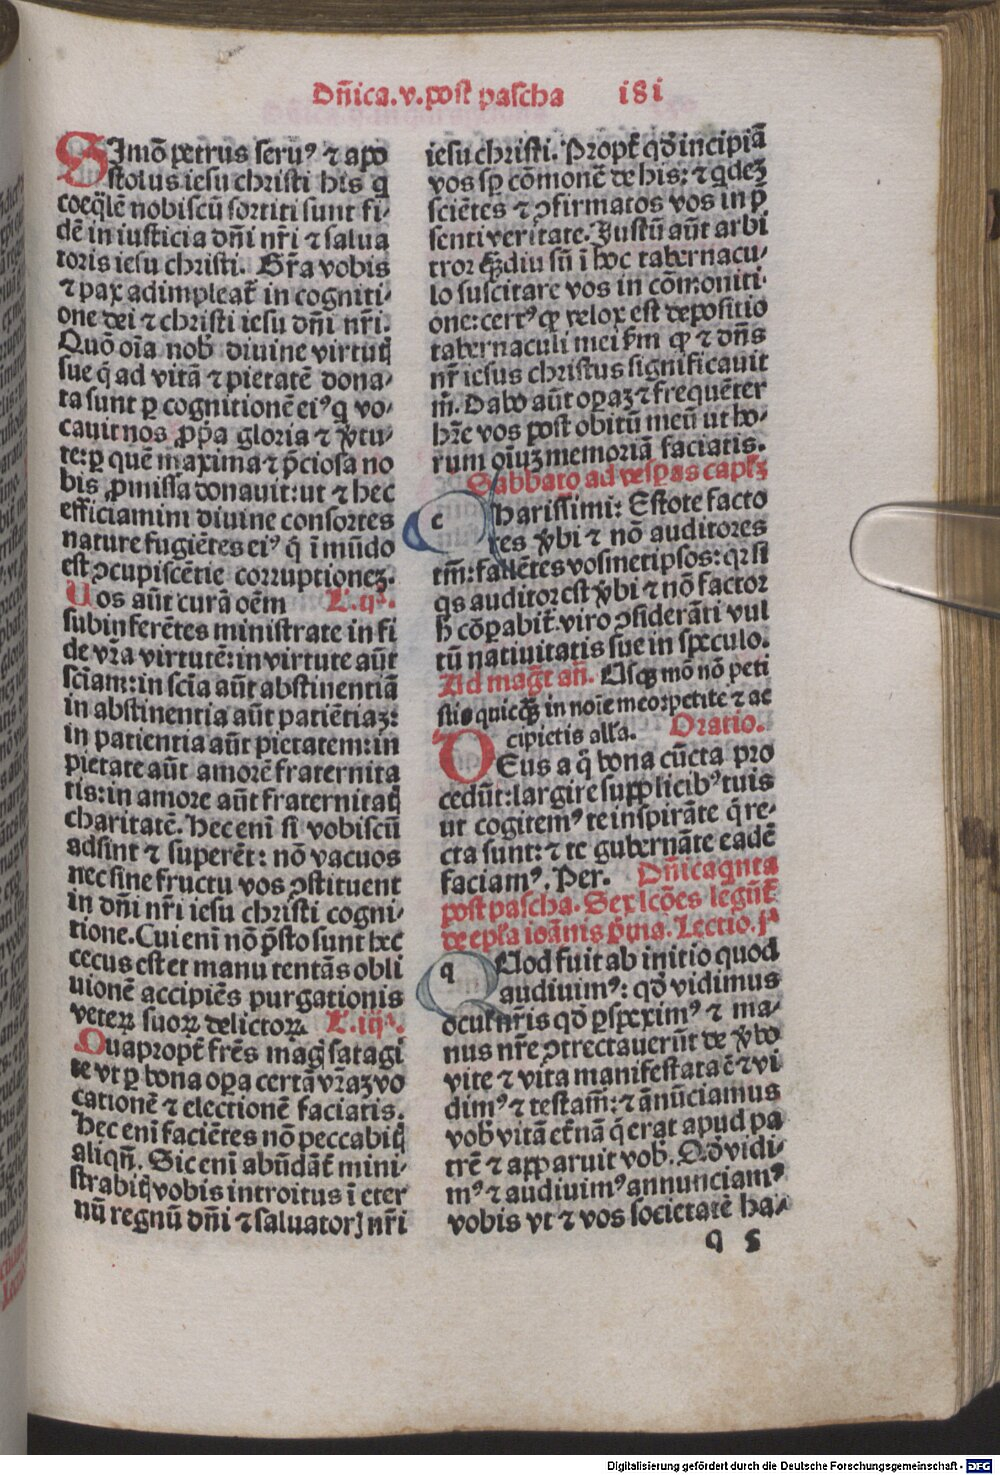 Dn̄ica.v.post pascha 181
SImō petrus seruꝰ ⁊ apo
stolus iesu christi his q̇
coeq̄lē nobiscū sortiti sunt fi⸗
dē in iusticia dn̄i nr̄i ⁊ salua
toris iesu christi. Gr̄a vobis
⁊ pax adimpleat᷑ in cogniti⸗
one dei ⁊ christi iesu dn̄i nr̄i.
Quō oīa nob̄ diuine virtutꝭ
sue q̄ ad vitā ⁊ pietatē dona⸗
ta sunt ꝑ cognitionē eiꝰ q̇ vo⸗
cauit nos ꝓpͥa gloria ⁊ v̓tu⸗
te:ꝑ quē maxima ⁊ p̄ciosa no
bis ꝓmissa donauit:ut ⁊ hec
efficiamini diuine consortes
nature fugiētes eiꝰ q̄ ī mūdo
est ꝯcupiscētie corruptioneꝫ.
Uos aūt curā oēm L.ijᵃ.
subinferētes ministrate in fi
de vr̄a virtutē:in virtute aūt
sciam:in scīa aūt abstinentiā
in abstinentia aūt patiētiaꝫ:
in patientia aūt pietatem:in
pietate aūt amorē fraternita
tis:in amore aūt fraternitatꝭ
charitatē. Hec enī si vobiscū
adsint ⁊ superēt: nō vacuos
nec sine fructu vos ꝯstituent
in dn̄i nr̄i iesu christi cogni⸗
tione. Cui enī nō p̄sto sunt hec
cecus est et manu tentās obli
uionē accipiēs purgationis
veterꝝ suoꝝ delictoꝝ. L.iijᵃ.
Quapropt̄ fr̄es magꝭ satagi
te vt ꝑ bona oꝑa certā vr̄aꝫ vo
cationē ⁊ electionē faciatis.
Hec enī faciētes nō peccabitꝭ
aliqn̄. Sic enī abūdāt᷑ mini⸗
strabit᷑ vobis introitus ī eter
nū regnū dn̄i ⁊ saluatorꝭ nr̄i
iesu christi. Propt̄ qd̄ incipiā
vos sꝑ cōmonē de his: ⁊ qͥdeꝫ
sciētes ⁊ ꝯfirmatos vos in p̄
senti veritate. Justū aūt arbi
tror qͣ̄diu sū ī hoc tabernacu⸗
lo suscitare vos in cōmoniti⸗
one:certꝰ ꝙ velox est depositio
tabernaculi mei ẜm ꝙ ⁊ dn̄s
nr̄ iesus christus significauit
m̄. Dabo aūt oꝑaꝫ ⁊ frequēter
hr̄e vos post obitū meū ut ho⸗
rum oīuꝫ memoriā faciatis.
Sabbato ad vesꝑas capl̄ꝫ
Charissimi: Estote facto
res v̓bi ⁊ nō auditores
tm̄: fallētes vosmetipsos: qꝛ si
qs auditor est v̓bi ⁊ nō factor
h̄ cōꝑabit᷑ viro ꝯsiderāti vul
tū natiuitatis sue in speculo.
Ad magt̄ an̄. Usqꝫ mō nō peti
stis quicqͣ̄ in noīe meo:petite ⁊ ac
cipietis alla. Oratio.
DEus a q̄ bona cūcta pro
cedūt:largire supplicibꝰ tuis
ut cogitemꝰ te inspirāte q̄ re⸗
cta sunt: ⁊ te gubernāte eadē
faciamꝰ. Per. Dn̄ica qͥnta
post pascha. Sex lcōes legūt᷑
de epl̄a ioānis p̄ma. Lectio.jᵃ
QUod fuit ab initio quod
audiuimꝰ: qd̄ vidimus
oculis nr̄is qd̄ ꝑspeximꝰ ⁊ ma⸗
nus nr̄e ꝯtrectauerūt de v̓bo
vite ⁊ vita manifestata ē ⁊ vi
dimꝰ ⁊ testam̄: ⁊ ānūciamus
vob̄ vitā et̄nā q̄ erat apud pa
trē ⁊ apparuit vob̄. Qd̄ vidi⸗
mꝰ ⁊ audiuimꝰ annunciamꝰ
vobis vt ⁊ vos societatē ha⸗
q 5
Digitalisierung gefördert durch die Deutsche Forschungsgemeinschaft - DFG